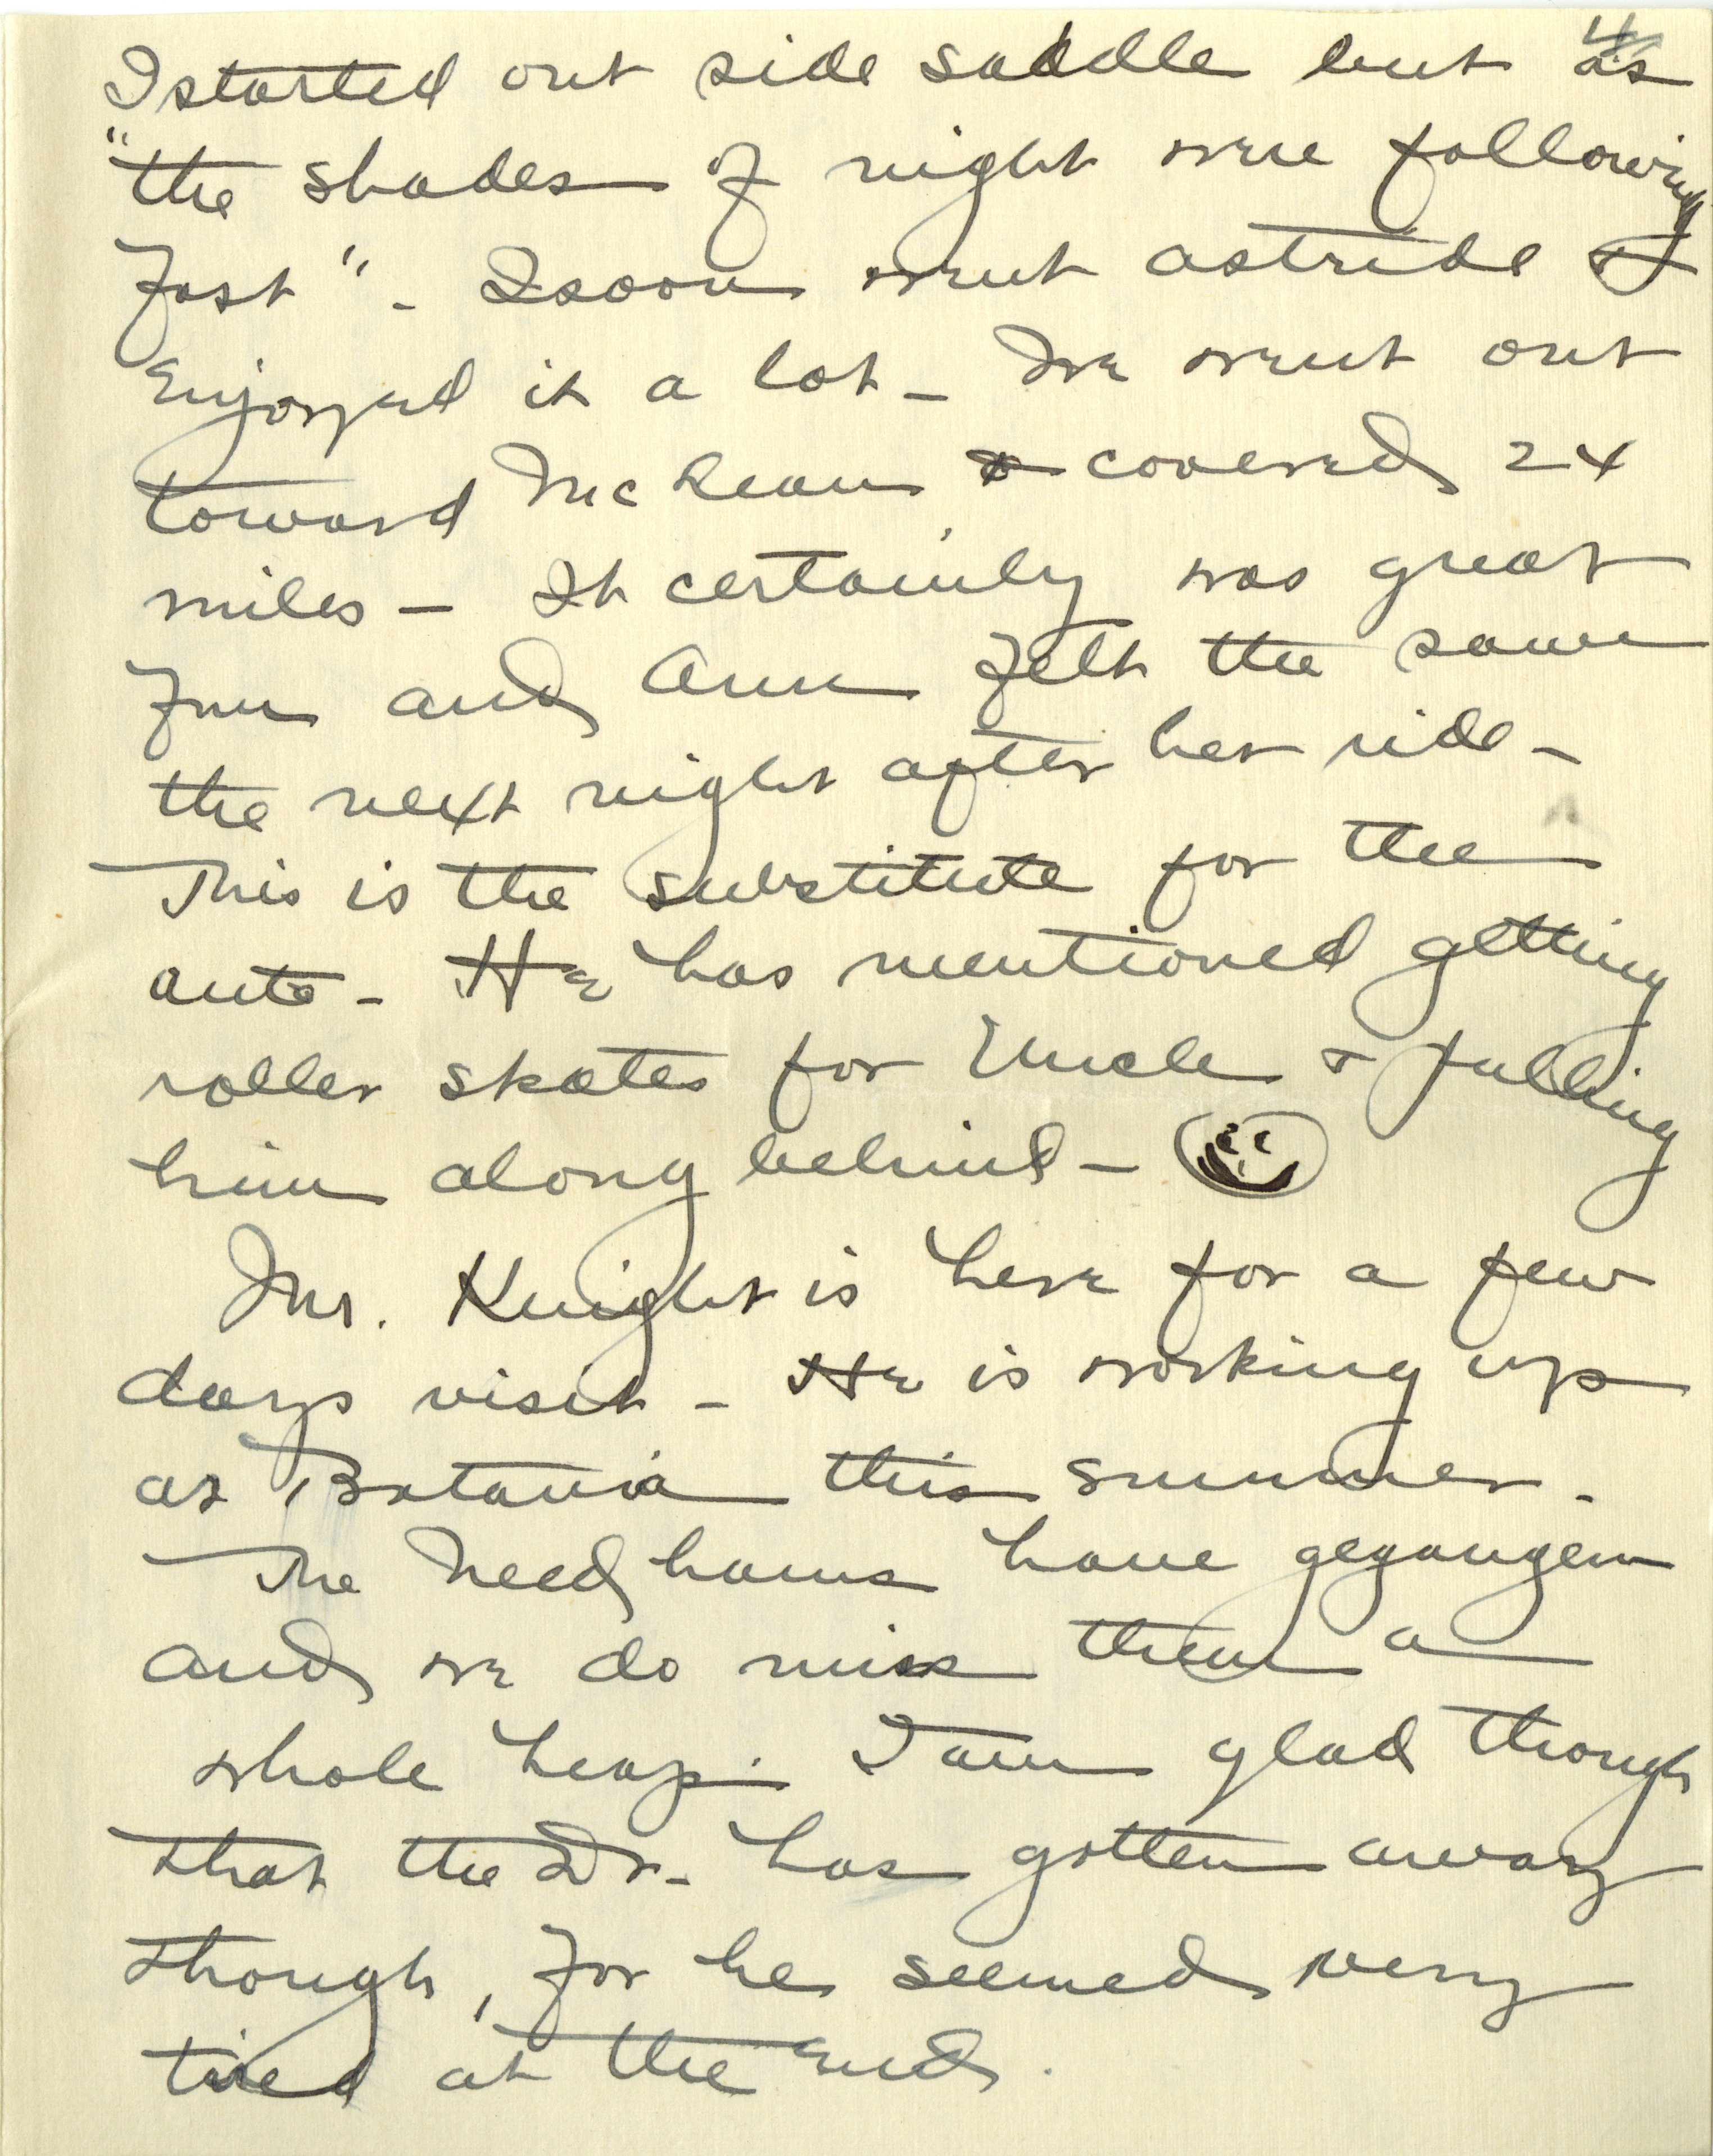 4
I started out side saddle but as
"the shades of night were following
fast" - I soon went astride &
Enjoyed it a lot - We went out
toward McLean & covered 24
miles - It certainly was great
fun and Ann felt the same
the next night after her ride -
This is the substitute for the
auto - He has mentioned getting
roller skates for Uncle & pulling
him along behind -
Mr. Knight is here for a few
days visit - He is working up
at Batavia this summer.
The Needhams have gegangen
and we do miss them a
whole heap. I am glad though
that the Dr. has gotten away
though, for he seemed very
tired at the End.